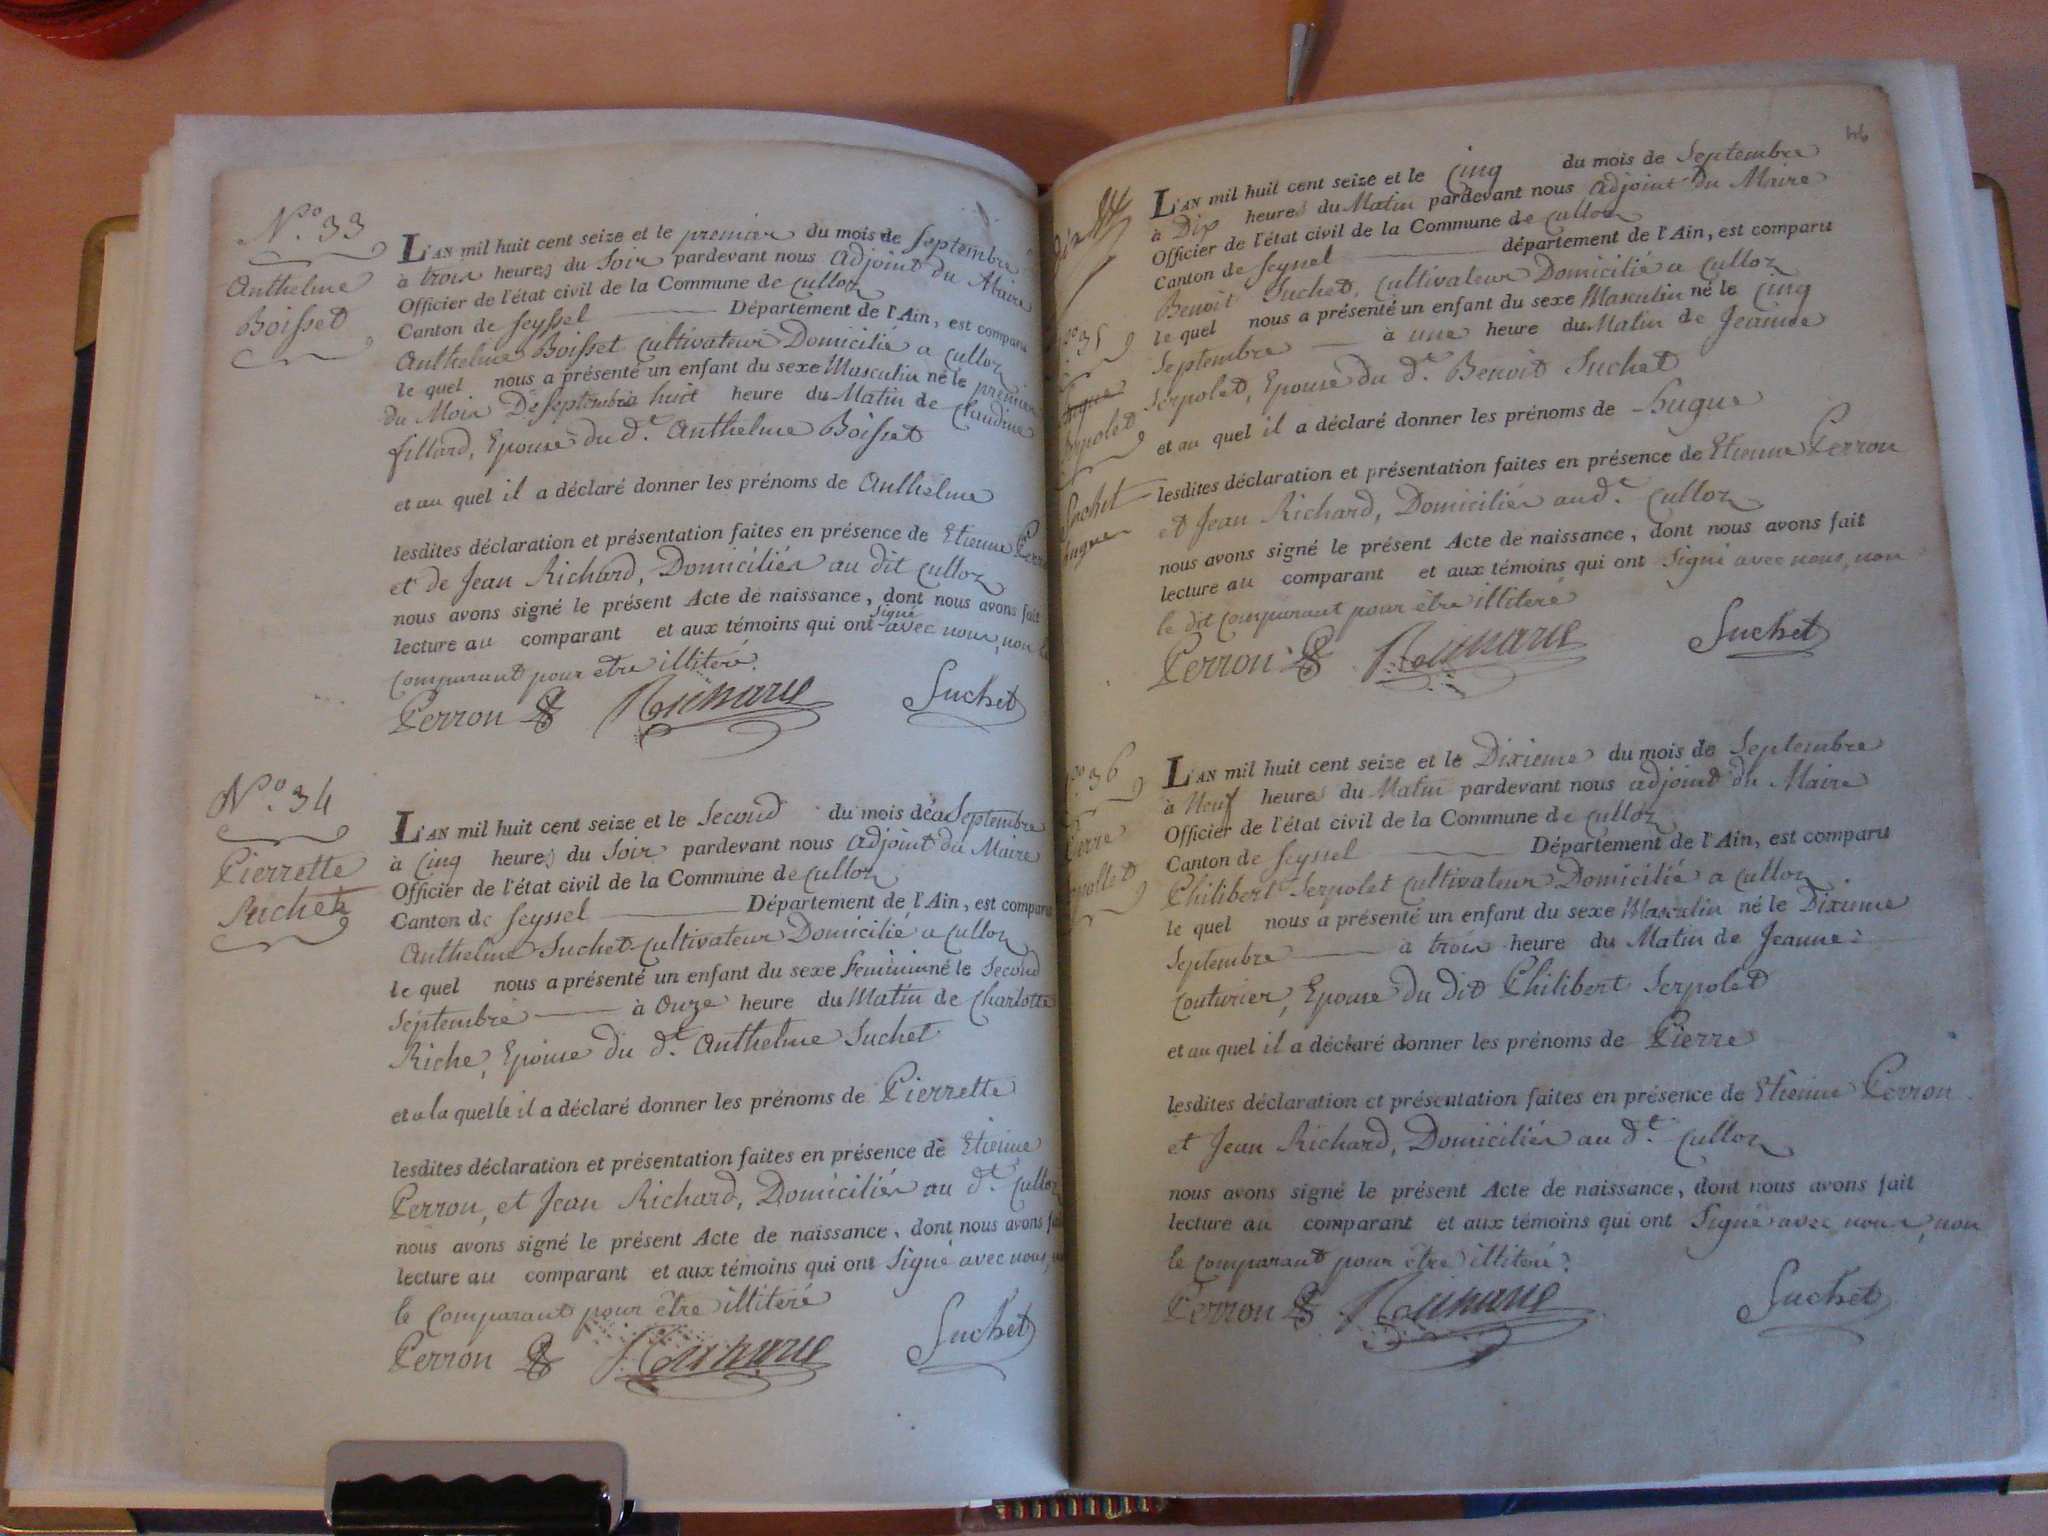 N.º 33
Anthelme
Boisset
L'AN mil huit cent seize et le premier du mois de Septembre
à trois heures du Soir pardevant nous adjoint du Maire
Officier de l'état civil de la Commune de Culloz
Canton de Seyssel Département de l'Ain, est comparu
Anthelme Boisset cultivateur Domicilié a Culloz
le quel nous a présenté un enfant du sexe Masculin né le premier
du Mois De Septembre a huit heure du Matin de Claudine
fillard, Epouse du d.t Anthelme Boisset
et au quel il a déclaré donner les prénoms de Anthelme
lesdites déclaration et présentation faites en présence de Etienne
et de Jean Richard, Domiciliés au dit Culloz
nous avons signé le présent Acte de naissance, dont nous avons fait
lecture au comparant et aux témoins qui ont signé avec nous, non le
comparant pour être illiteré.
Perron Suchet
N.º 34
Pierrette
Suchet
L'AN mil huit cent seize et le Second du mois de Septembre
à Cinq heures du Soir pardevant nous adjoint du Maire
Officier de l'état civil de la Commune de Culloz
Canton de Seyssel Département de l'Ain, est comparu
Anthelme Suchet cultivateur Domicilié a Culloz
le quel nous a présenté un enfant du sexe feminin né le Second
Septembre à Onze heure du Matin de Charlotte
Riche, Epouse du d.t Anthelme Suchet
et a la quelle il a déclaré donner les prénoms de Pierrette
lesdites déclaration et présentation faites en présence de Etienne
Perron, et Jean Richard, Domiciliés au d.t Culloz
nous avons signé le présent Acte de naissance, dont nous avons
lecture au comparant et aux témoins qui ont Signé avec nous,
le Comparant pour être illiteré
Perron Suchet
L'AN mil huit cent seize et le Cinq du mois de Septembre
à Dix heures du Matin pardevant nous adjoint du Maire
Officier de l'état civil de la Commune de Culloz
Canton de Seyssel département de l'Ain, est comparu
Benoit Suchet, cultivateur Domicilié a Culloz
le quel nous a présenté un enfant du sexe Masculin né le Cinq
Septembre à une heure du Matin de Jeanne
Serpolet, Epouse du d.t Benoit Suchet
et au quel il a déclaré donner les prénoms de hugue
lesdites déclaration et présentation faites en présence de Etienne Perron
et Jean Richard, Domiciliés au d.t Culloz
nous avons signé le présent Acte de naissance, dont nous avons fait
lecture au comparant et aux témoins qui ont Signé avec nous, non
le dit Comparant pour être illiteré
Perron Suchet
35
Suchet
hugue
L'AN mil huit cent seize et le Dixieme du mois de Septembre
à Neuf heures du Matin pardevant nous adjoint du Maire
Officier de l'état civil de la Commune de Culloz
Canton de Seyssel Département de l'Ain, est comparu
Philibert Serpolet cultivateur Domicilié a Culloz
le quel nous a présenté un enfant du sexe Masculin né le Dixieme
Septembre à trois heure du Matin de Jeanne
Couturier, Epouse du dit Philibert Serpolet
et au quel il a déclaré donner les prénoms de Pierre
lesdites déclaration et présentation faites en présence de Etienne Perron
et Jean Richard, Domiciliés au d.t Culloz
nous avons signé le présent Acte de naissance, dont nous avons fait
lecture au comparant et aux témoins qui ont Signé avec nous, non
le comparant pour être illiteré.
Perron Suchet
36